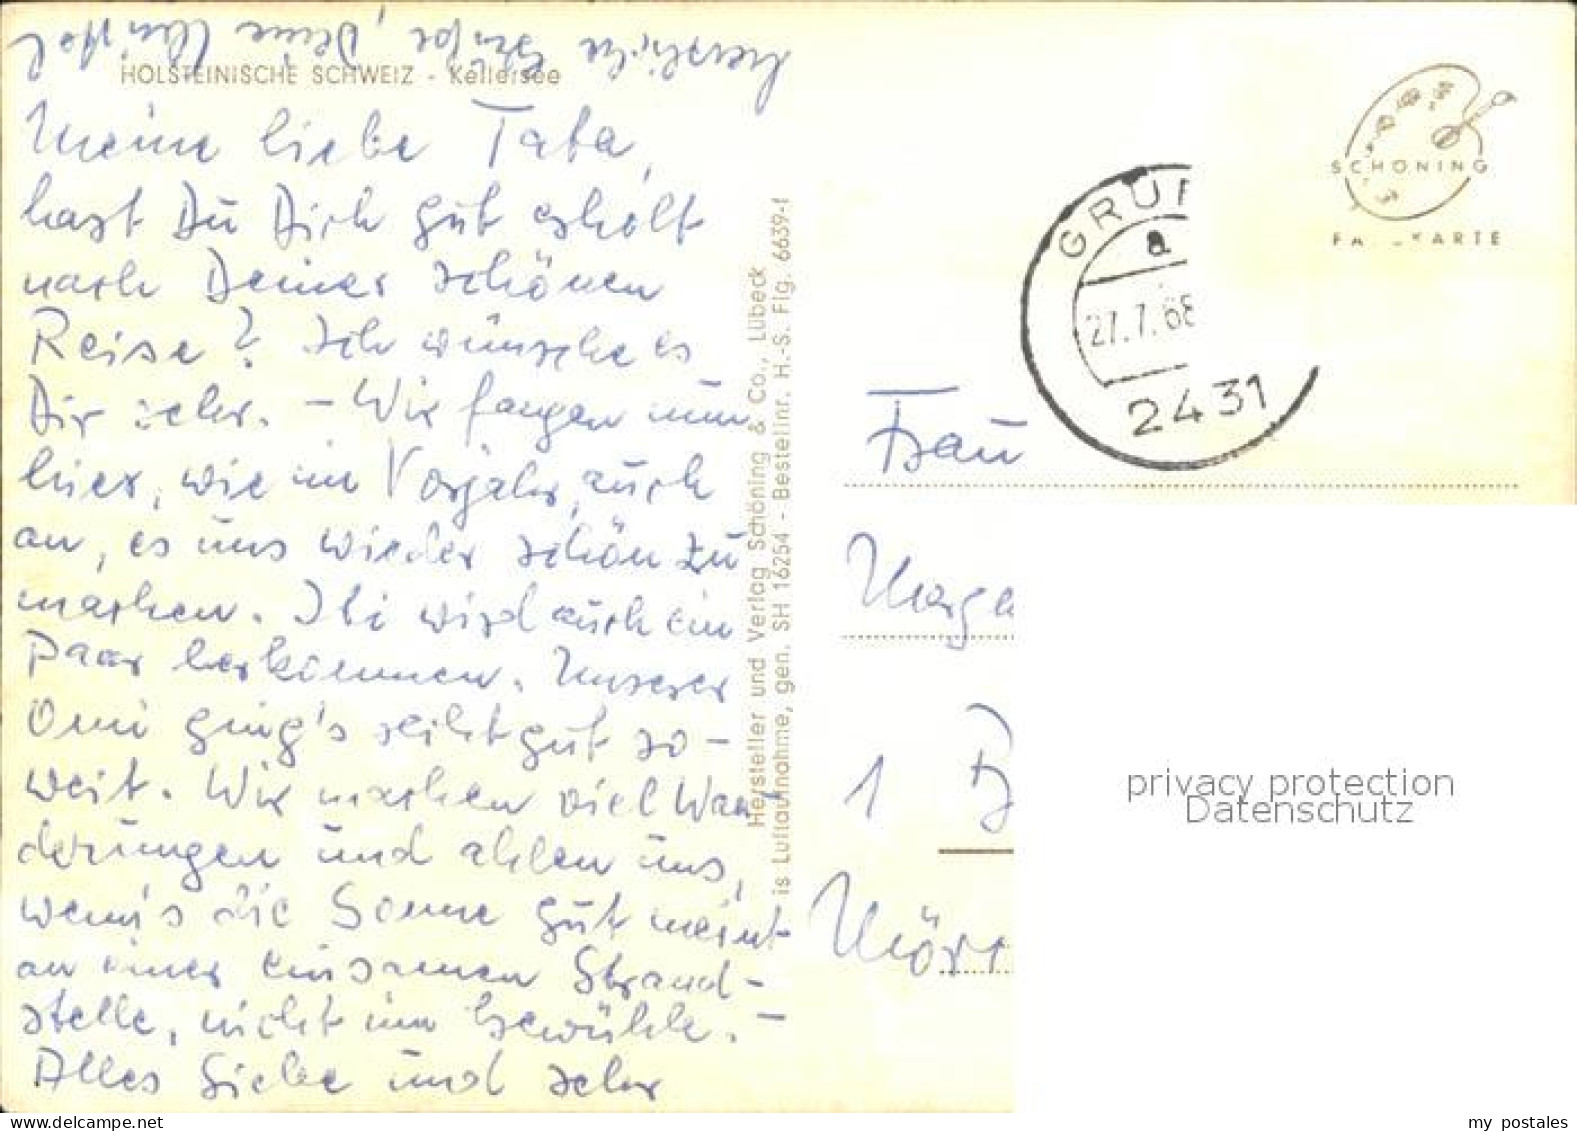 herzliche Grüße, Deine
HOLSTEINISCHE SCHWEIZ - Kellersee
Meine liebe Tata,
hast Du Dich gut erholt
nach Deiner schönen
Reise? Ich wünsche es
Dir sehr. - Wir fangen nun
hier, wie im Vorjahr, auch
an, es uns wieder schön zu
machen. Ibi wird auch ein
paar herkommen. Unserer
Omi ging's nicht gut so-
weit. Wir machen viel Wan-
derungen und ahlen uns,
wenn's die Sonne gut meint
an einer einsamen Strand-
stelle, nicht im Gewühle. -
Alles Liebe und sehr
Hersteller und Verlag Schöning & Co., Lübeck
is Luftaufnahme, gen. SH 16254 - Bestellnr. H.-S. Flg. 6639-f
SCHÖNING
F A KARTE
GRU
a
27.7.68
2431
Frau
1
privacy protection
Datenschutz
my postales